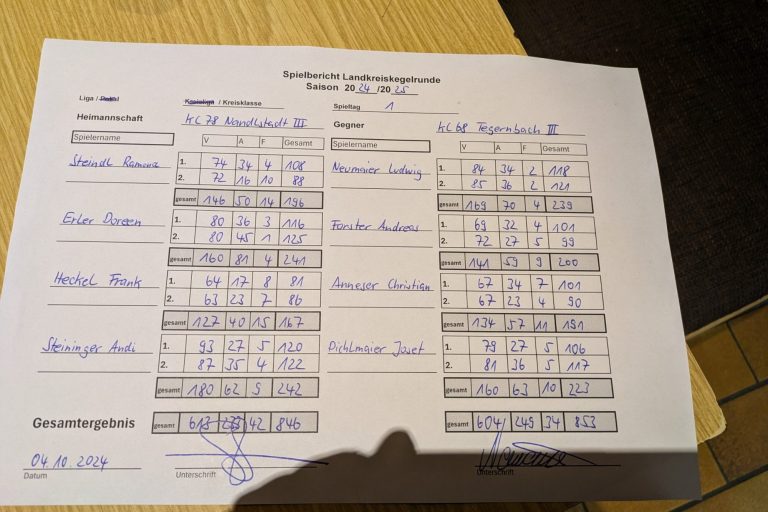 Spielbericht Landkreiskegelrunde
Saison 2024/2025
Liga / Pokal Kreisliga / Kreisklasse Spieltag 1
Heimannschaft KC 78 Nandlstadt III Gegner KC 68 Tegernbach III
Spielername V A F Gesamt Spielername V A F Gesamt
Steindl Ramona 1. 74 34 4 108 Neumaier Ludwig 1. 84 34 2 118
2. 72 16 10 88 2. 85 36 2 121
gesamt 146 50 14 196 gesamt 169 70 4 239
Erler Doreen 1. 80 36 3 116 Forster Andreas 1. 69 32 4 101
2. 80 45 1 125 2. 72 27 5 99
gesamt 160 81 4 241 gesamt 141 59 9 200
Heckel Frank 1. 64 17 8 81 Anneser Christian 1. 67 34 7 101
2. 63 23 7 86 2. 67 23 4 90
gesamt 127 40 15 167 gesamt 134 57 11 191
Steininger Andi 1. 93 27 5 120 Pichlmaier Josef 1. 79 27 5 106
2. 87 35 4 122 2. 81 36 5 117
gesamt 180 62 9 242 gesamt 160 63 10 223
Gesamtergebnis gesamt 613 233 42 846 gesamt 604 249 34 853
04.10.2024
Datum Unterschrift Unterschrift